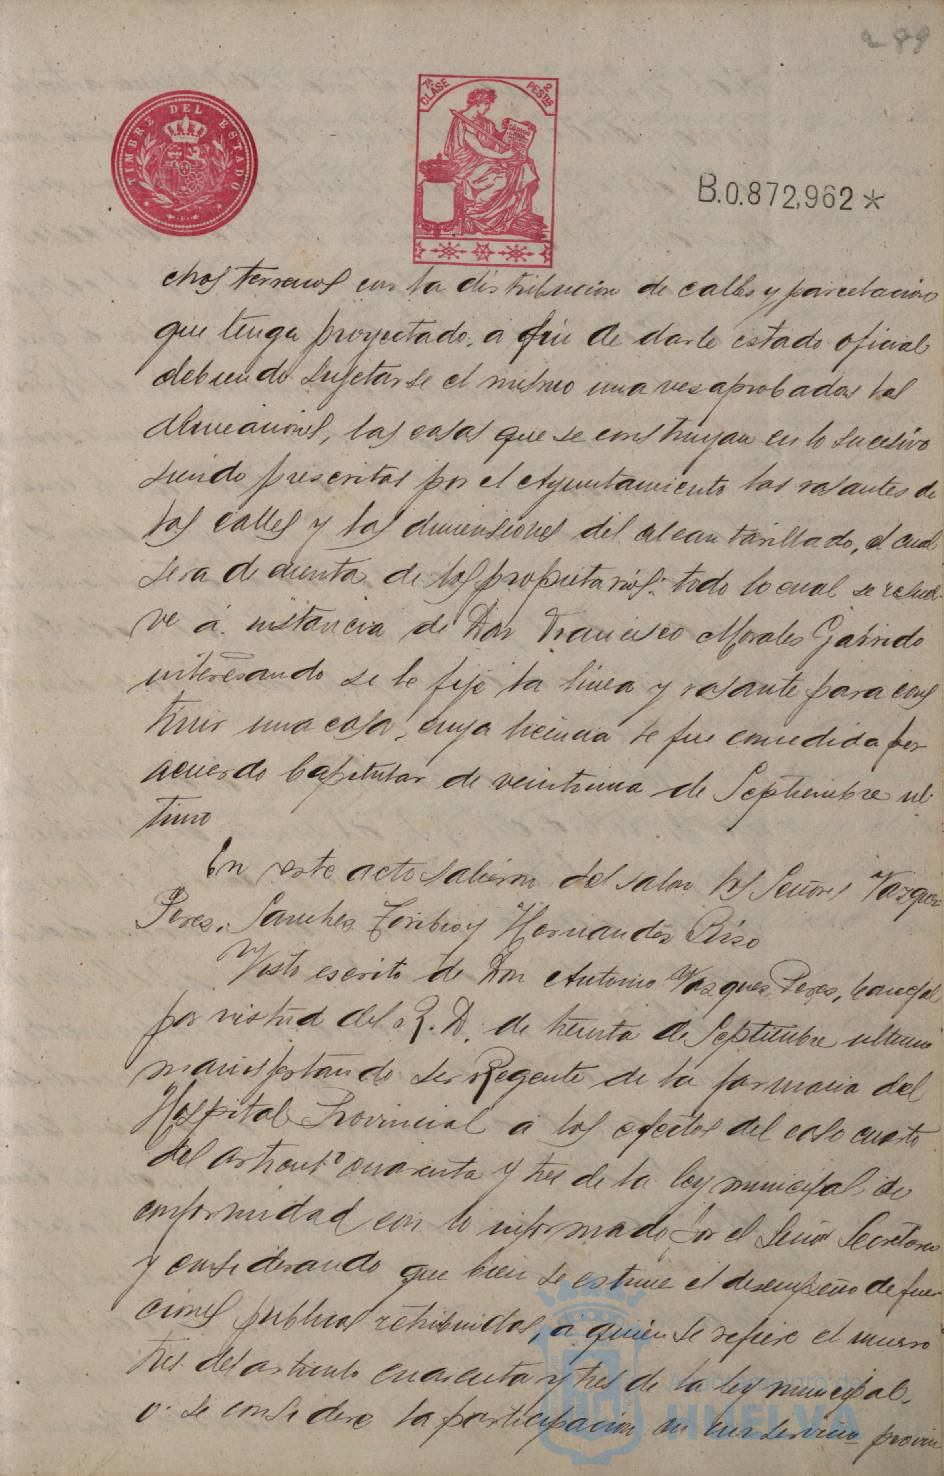 289
TIMBRE DEL ESTADO
7ª CLASE 2 PESTAS
B.0.872,962*
chos terrenos con la distribucion de calles y parcelaciones
que tenga proyectado, a fin de darle estado oficial
debiendo sujetarse el mismo una vez aprobadas las
alineaciones, las casas que se construyan en lo sucesivo
siendo prescritas por el Ayuntamiento las rasantes de
las calles y las dimensiones del alcantarillado, el cual
sera de cuenta de los propietarios: todo lo cual se resuel-
ve á instancia de Don Francisco Morales Garrido
interesando se le fije la linea y rasante para cons
truir una casa, cuya licencia le fue concedida por
acuerdo Capitular de veintiuno de Septiembre ul-
timo
En este acto salieron del salon los Señores Vazquez
Perez, Sanchez Toribio y Hernandez Pirzo
Visto escrito de Don Antonio Vazquez Perez, Concejal
por virtud del R. D. de treinta de Septiembre ultimo
manifestando ser Regente de la farmacia del
Hospital Provincial a los efectos del caso cuarto
del articulo cuarenta y tres de la ley municipal, de
conformidad con lo informado por el Señor Secretario
y considerando que bien se estime el desempeño de fun
ciones publicas retribuidas, a quien se refiere el numero
tres del articulo cuarenta y tres de la ley municipal,
o se considere la participacion en un servicio provin
Ayuntamiento de
HUELVA